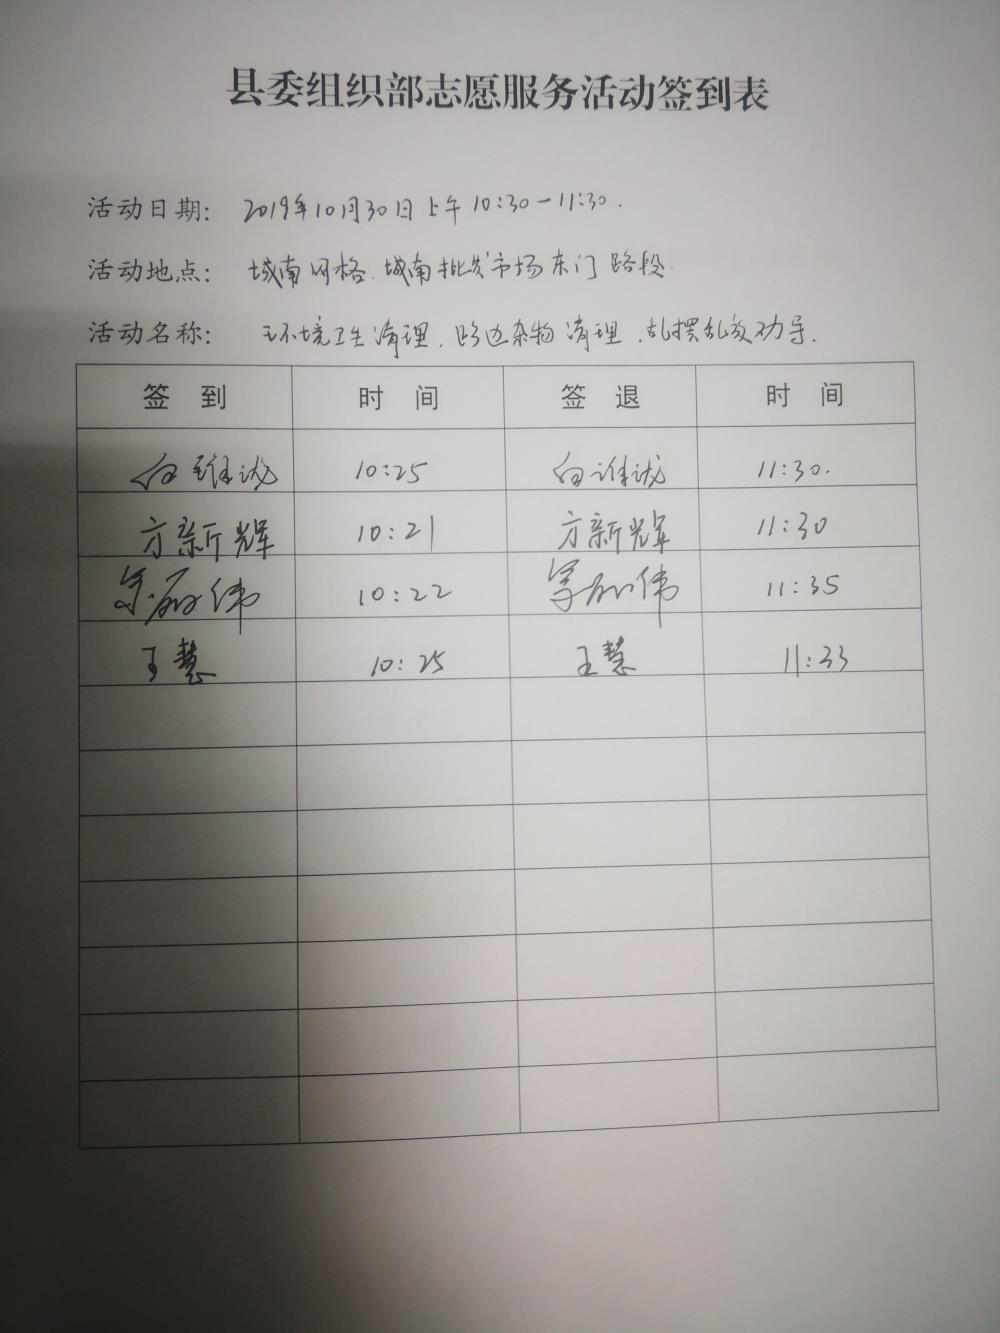 县委组织部志愿服务活动签到表
活动日期： 2019年10月30日上午10:30－11:30.
活动地点： 城南网格.城南批发市场东门路段.
活动名称： 环境卫生清理.路边杂物清理.乱摆乱放劝导.
签 到 时 间 签 退 时 间
白 10:25 白 11:30.
方新辉 10:21 方新辉 11:30
伟 10:22 伟 11:35
王慧 10:25 王慧 11:33